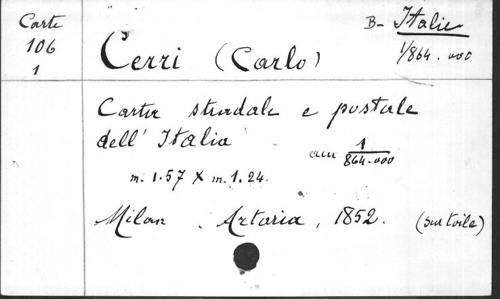 Carte
106
1
B- Italie
1/864.000
Cerri (Carlo)
Carta stradale e postale
dell' Italia
au 1/864.000
m. 1.57 X m. 1.24.
Milan . Artaria, 1852. (sur toile)